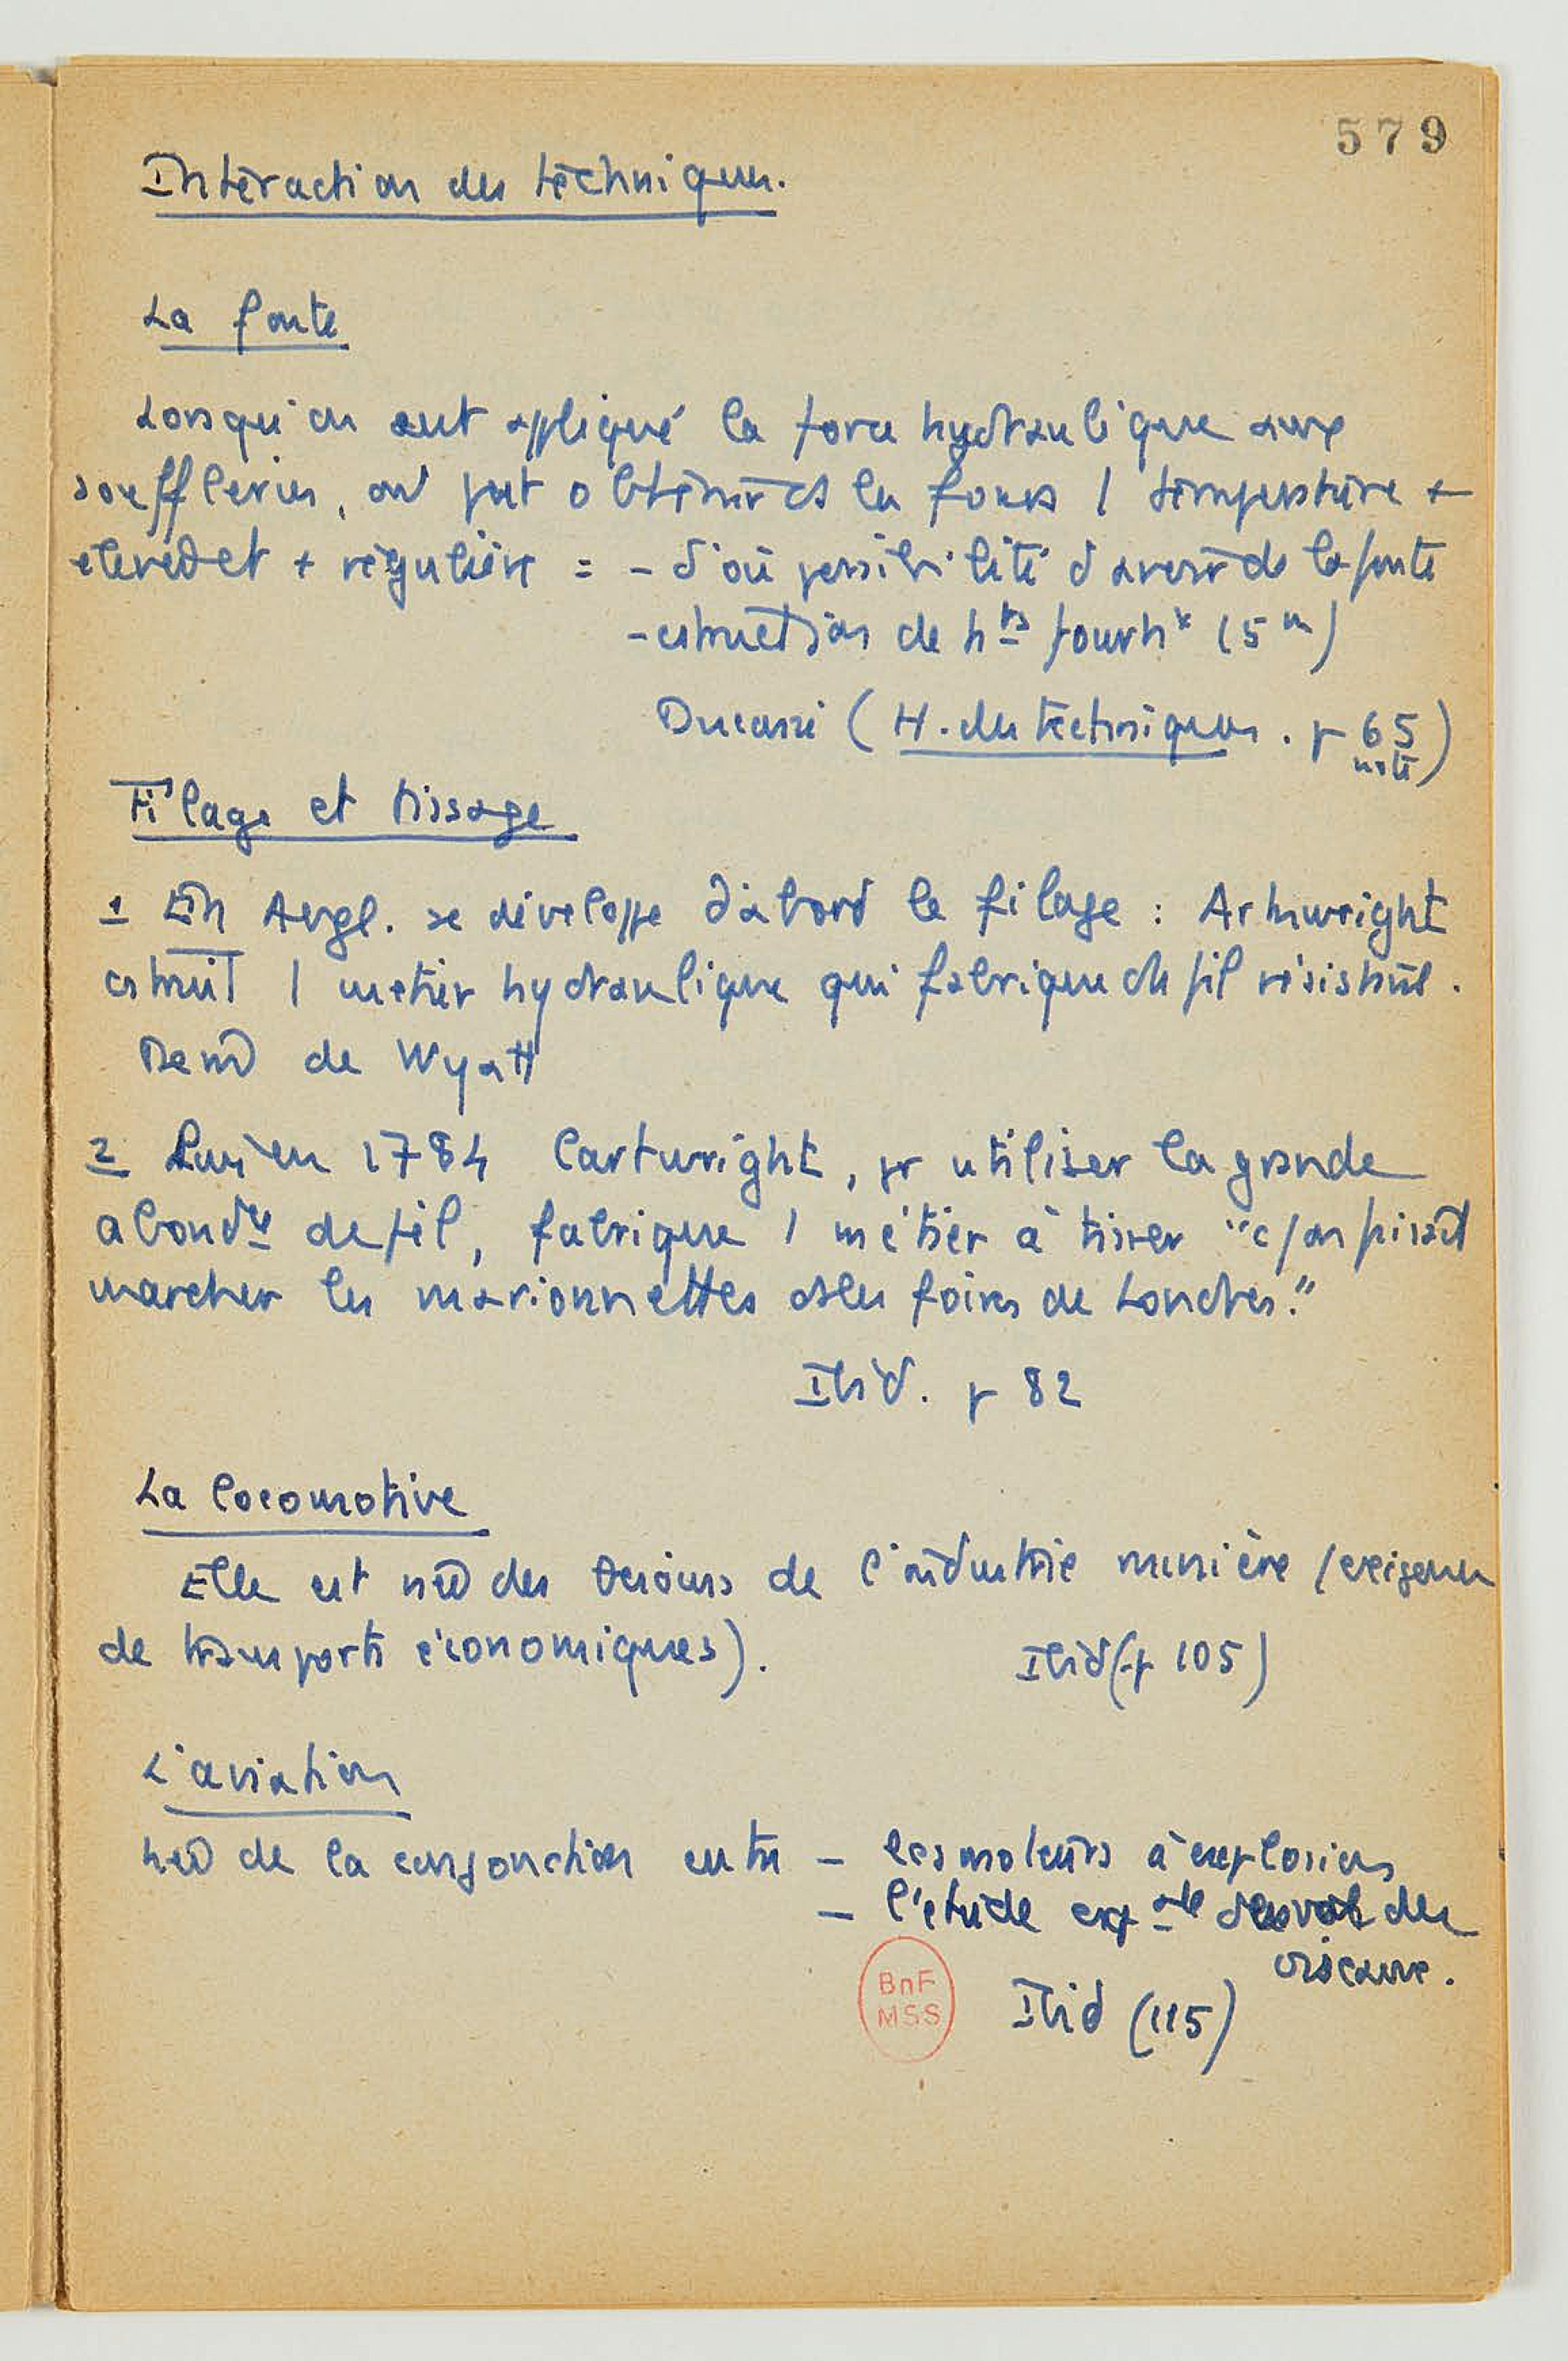 579
Interaction des techniques.
La fonte
Lorsqu'on eut appliqué la force hydraulique aux
souffleries, on put obtenir ds les fours 1 température +
élevée et + régulière = - d'où possibilité d'avoir de la fonte
- cstruction de hts fourn* (5 m)
Ducassé (H. des techniques. p 65
note)
Filage et tissage
1 En Angl. se développe d'abord le filage : Arkwright
cstruit 1 métier hydraulique qui fabrique du fil résistant.
de Wyatt
2 Puis en 1784 Cartwright, pr utiliser la grande
abondce de fil, fabrique 1 métier à tisser "c/ on faisait
marcher les marionnettes ds les foires de Londres."
Ibid. p 82
La locomotive
Elle est née des besoins de l'industrie minière (exigences
de transports économiques).
Ibid (p 105)
L'aviation
née de la conjonction entre - les moteurs à explosions
- l'étude expale du vol des
oiseaux.
BnF
MSS
Ibid (115)